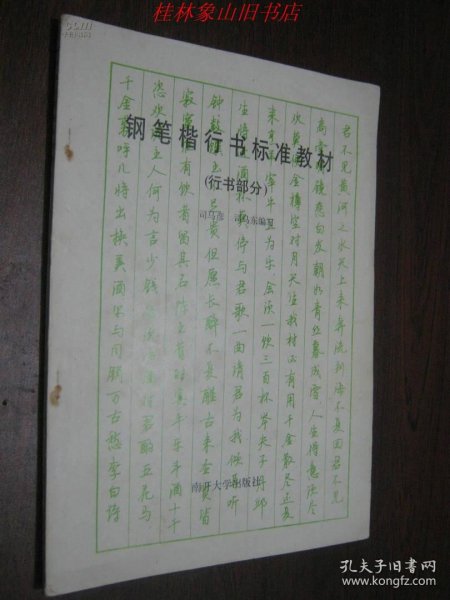 桂林象山旧书店
钢笔楷行书标准教材
(行书部分)
司马彦 司马东编写
君不见黄河之水天上来奔流到海不复回君不见
高堂明镜悲白发朝如青丝暮成雪人生得意须尽
欢莫使金樽空对月天生我材必有用千金散尽还复
来烹羊宰牛且为乐会须一饮三百杯岑夫子丹邱
生将进酒杯莫停与君歌一曲请君为我倾耳听
钟鼓馔玉不足贵但愿长醉不复醒古来圣贤皆
寂寞唯有饮者留其名陈王昔时宴平乐斗酒十千
恣欢谑主人何为言少钱径须沽取对君酌五花马
千金裘呼儿将出换美酒与尔同销万古愁李白诗
南开大学出版社
孔夫子旧书网
www.kongfz.com